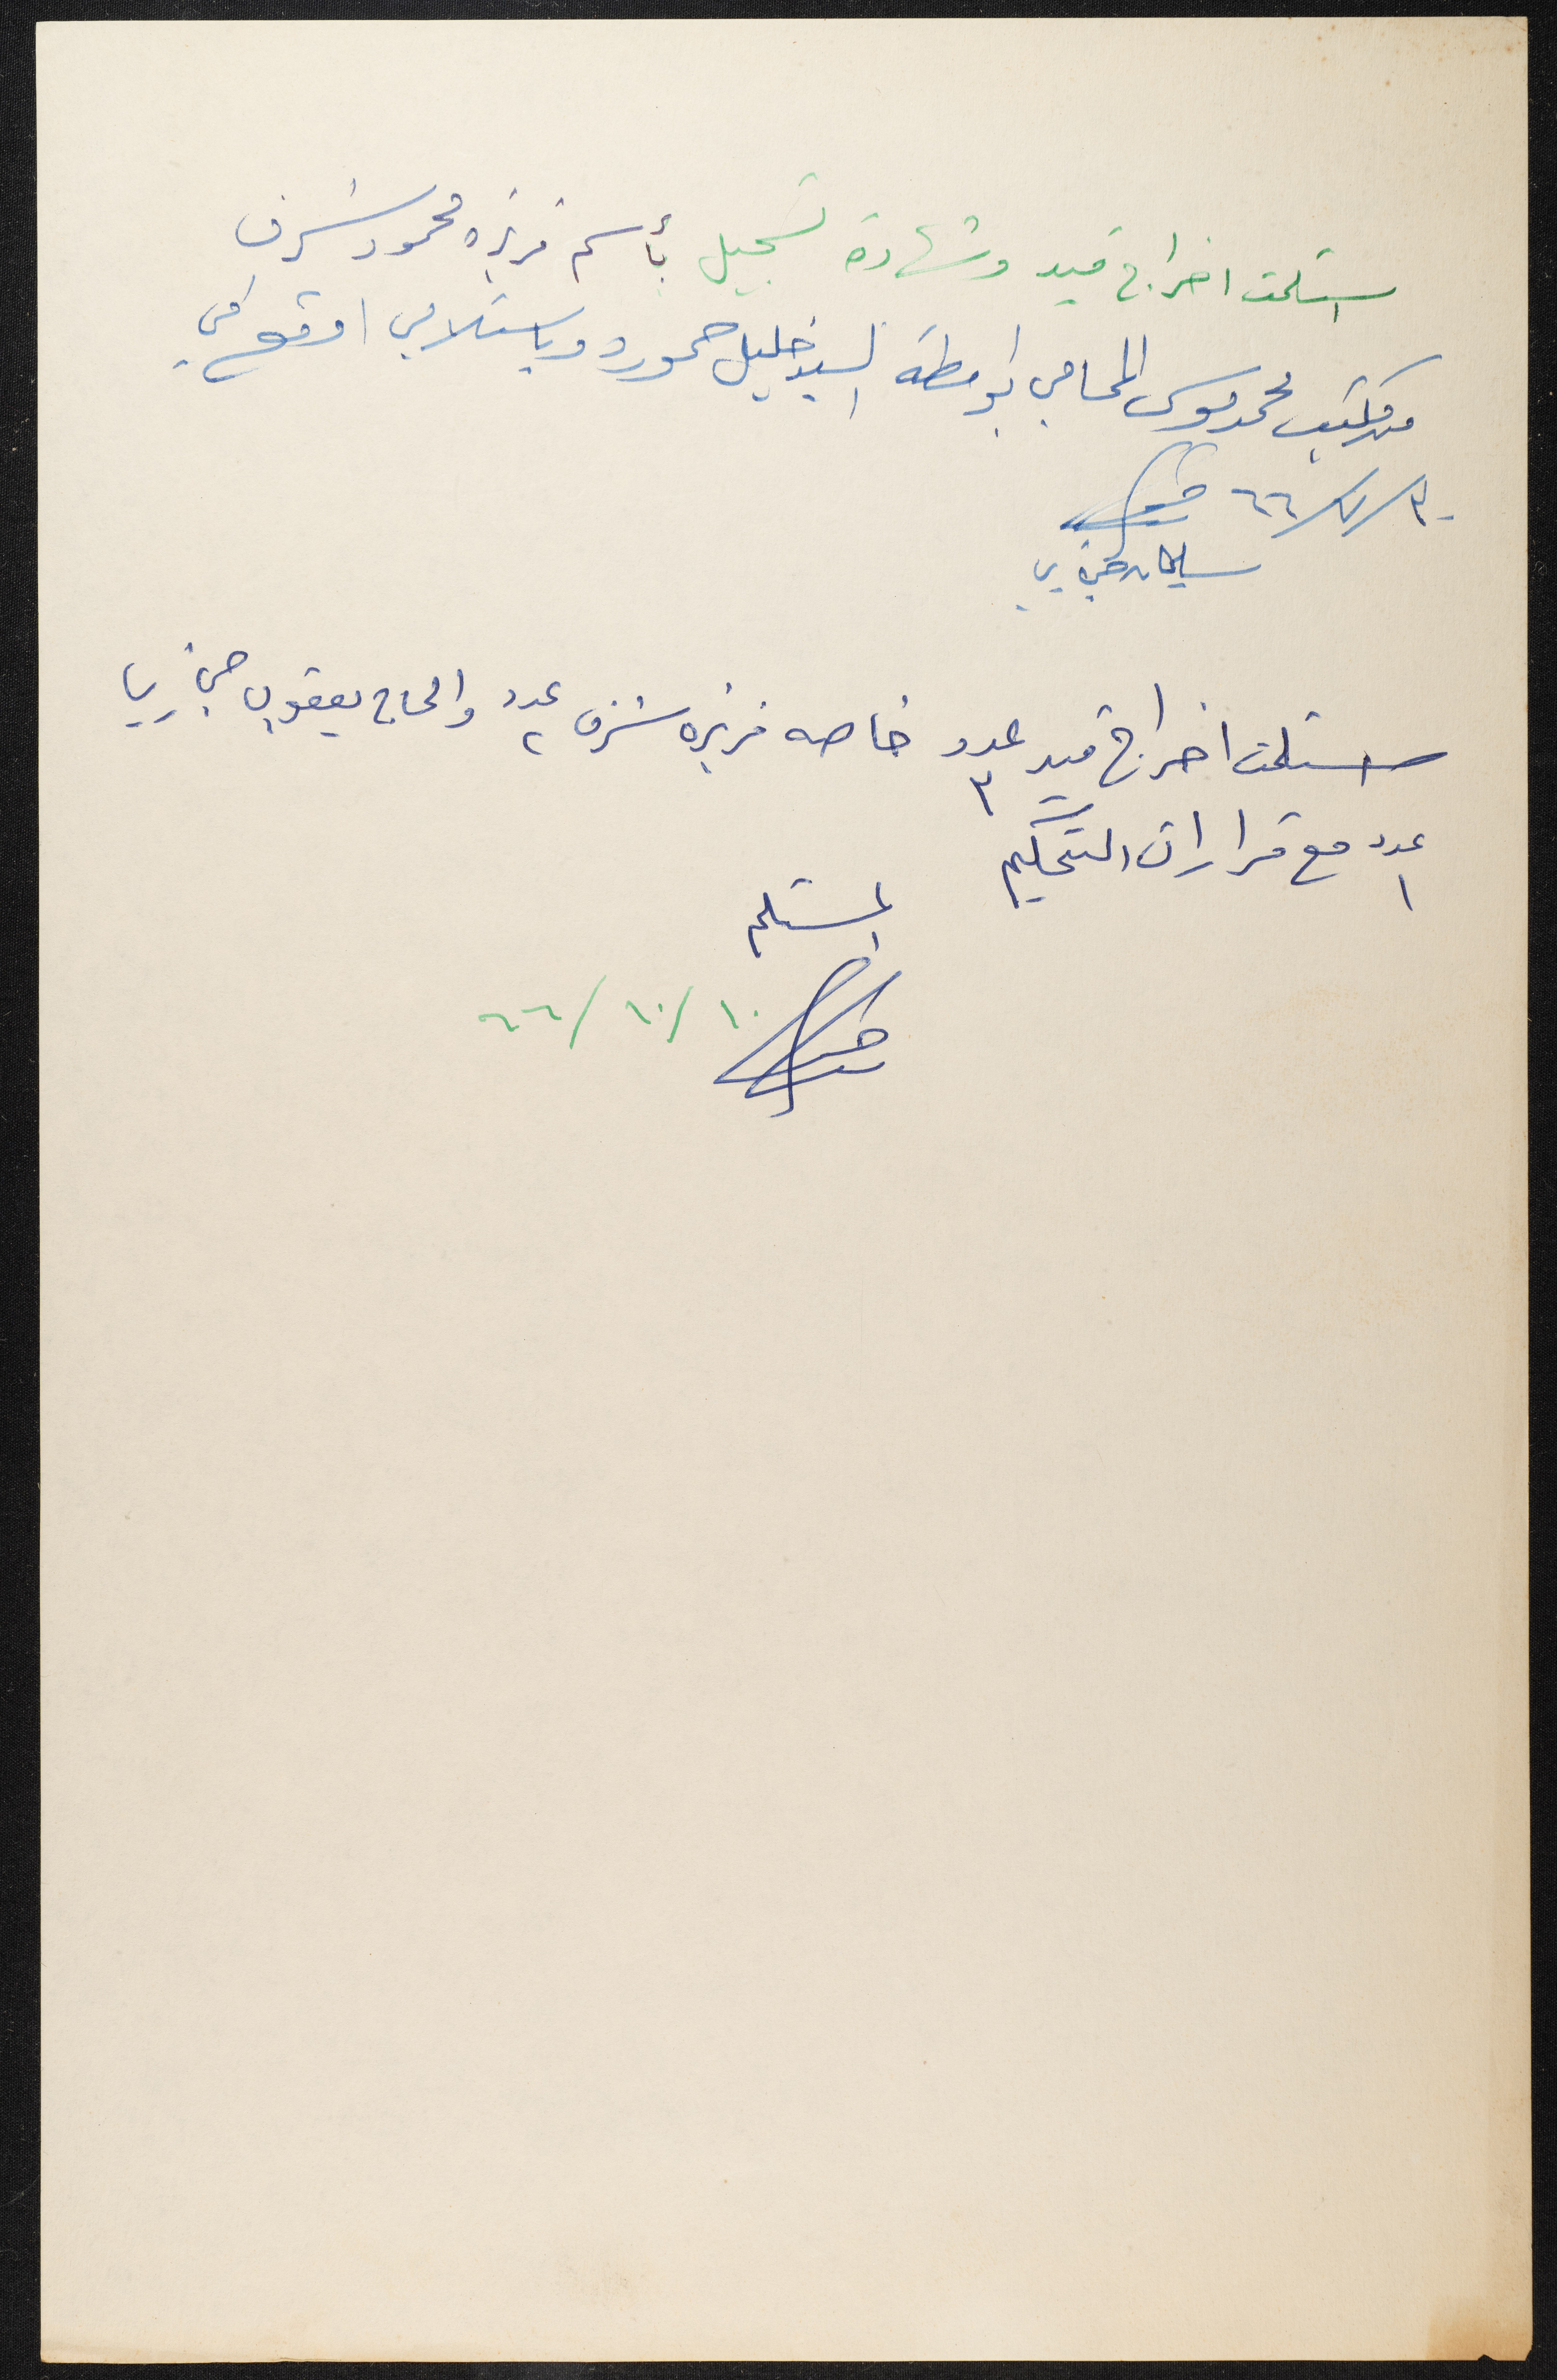 استلمت اخراج قيد وشهادة تسجيل بأسم فريزه محمود شرف
من مكتب محمد موسى المحامي بواسطة السيد خليل حمورد وباستلامي اوقع
٦٦/٧/٣٠
سليمان
استلمت اخراج قيد عدد ٣ خاصه فريزه شرف عدد ٢ والحاج يعقوب
عدد ١ مع قرارات التحكيم
المستلم
٦٦/١٠/١٠